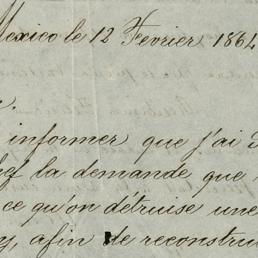 Mexico le 12 Fevrier 1864
informer que j'ai
la demande que
ce qu'on détruise une
afin de reconstru